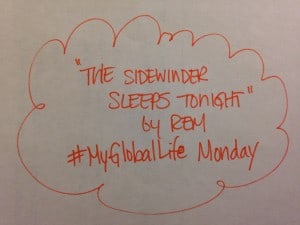 "THE SIDEWINDER
SLEEPS TONIGHT"
by REM
#MyGlobalLife Monday